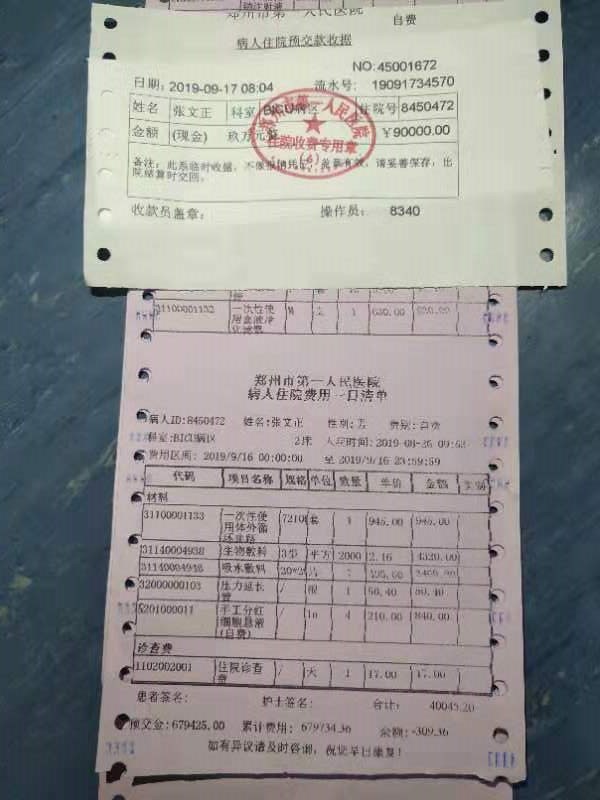 郑州市第一人民医院
自费
病人住院预交款收据
NO:45001672
日期: 2019-09-17 08:04 流水号: 19091734570
姓名 张文正 科室 BICU病区 住院号 8450472
金额 (现金) 玖万元整 ¥90000.00
备注: 此系临时收据, 不做报销凭证, 盖章有效, 请妥善保存, 出
院结算时交回。
收款员盖章: 操作员: 8340
郑州市第一人民医院
住院收费专用章
31100001132 一次性使 M 支 1 630.00 630.00
用血液净
化滤器
郑州市第一人民医院
病人住院费用一日清单
病人ID:8450472 姓名:张文正 性别:男 费别:自费
科室:BICU病区 2床 入院时间:2019-08-26
费用区间: 2019/9/16 00:00:00 至 2019/9/16 23:59:59
代码 项目名称 规格 单位 数量 单价 金额
材料
31100001133 一次性使 套 1 945.00 945.00
用体外循
环血路
31140004938 生物敷料 平方 2000 2.16 4320.00
31140004948 吸水敷料
32000000103 压力延长 / 根 1
管
5201000011 手工分红 / 4 210.00 840.00
细胞悬液
(自费)
诊查费
1102002001 住院诊查 / 天 1 17.00 17.00
费
患者签名: 护士签名: 合计: 40045.20
预交金:679425.00 累计费用: 679734.36 余额:-309.36
如有异议请及时咨询, 祝您早日康复!